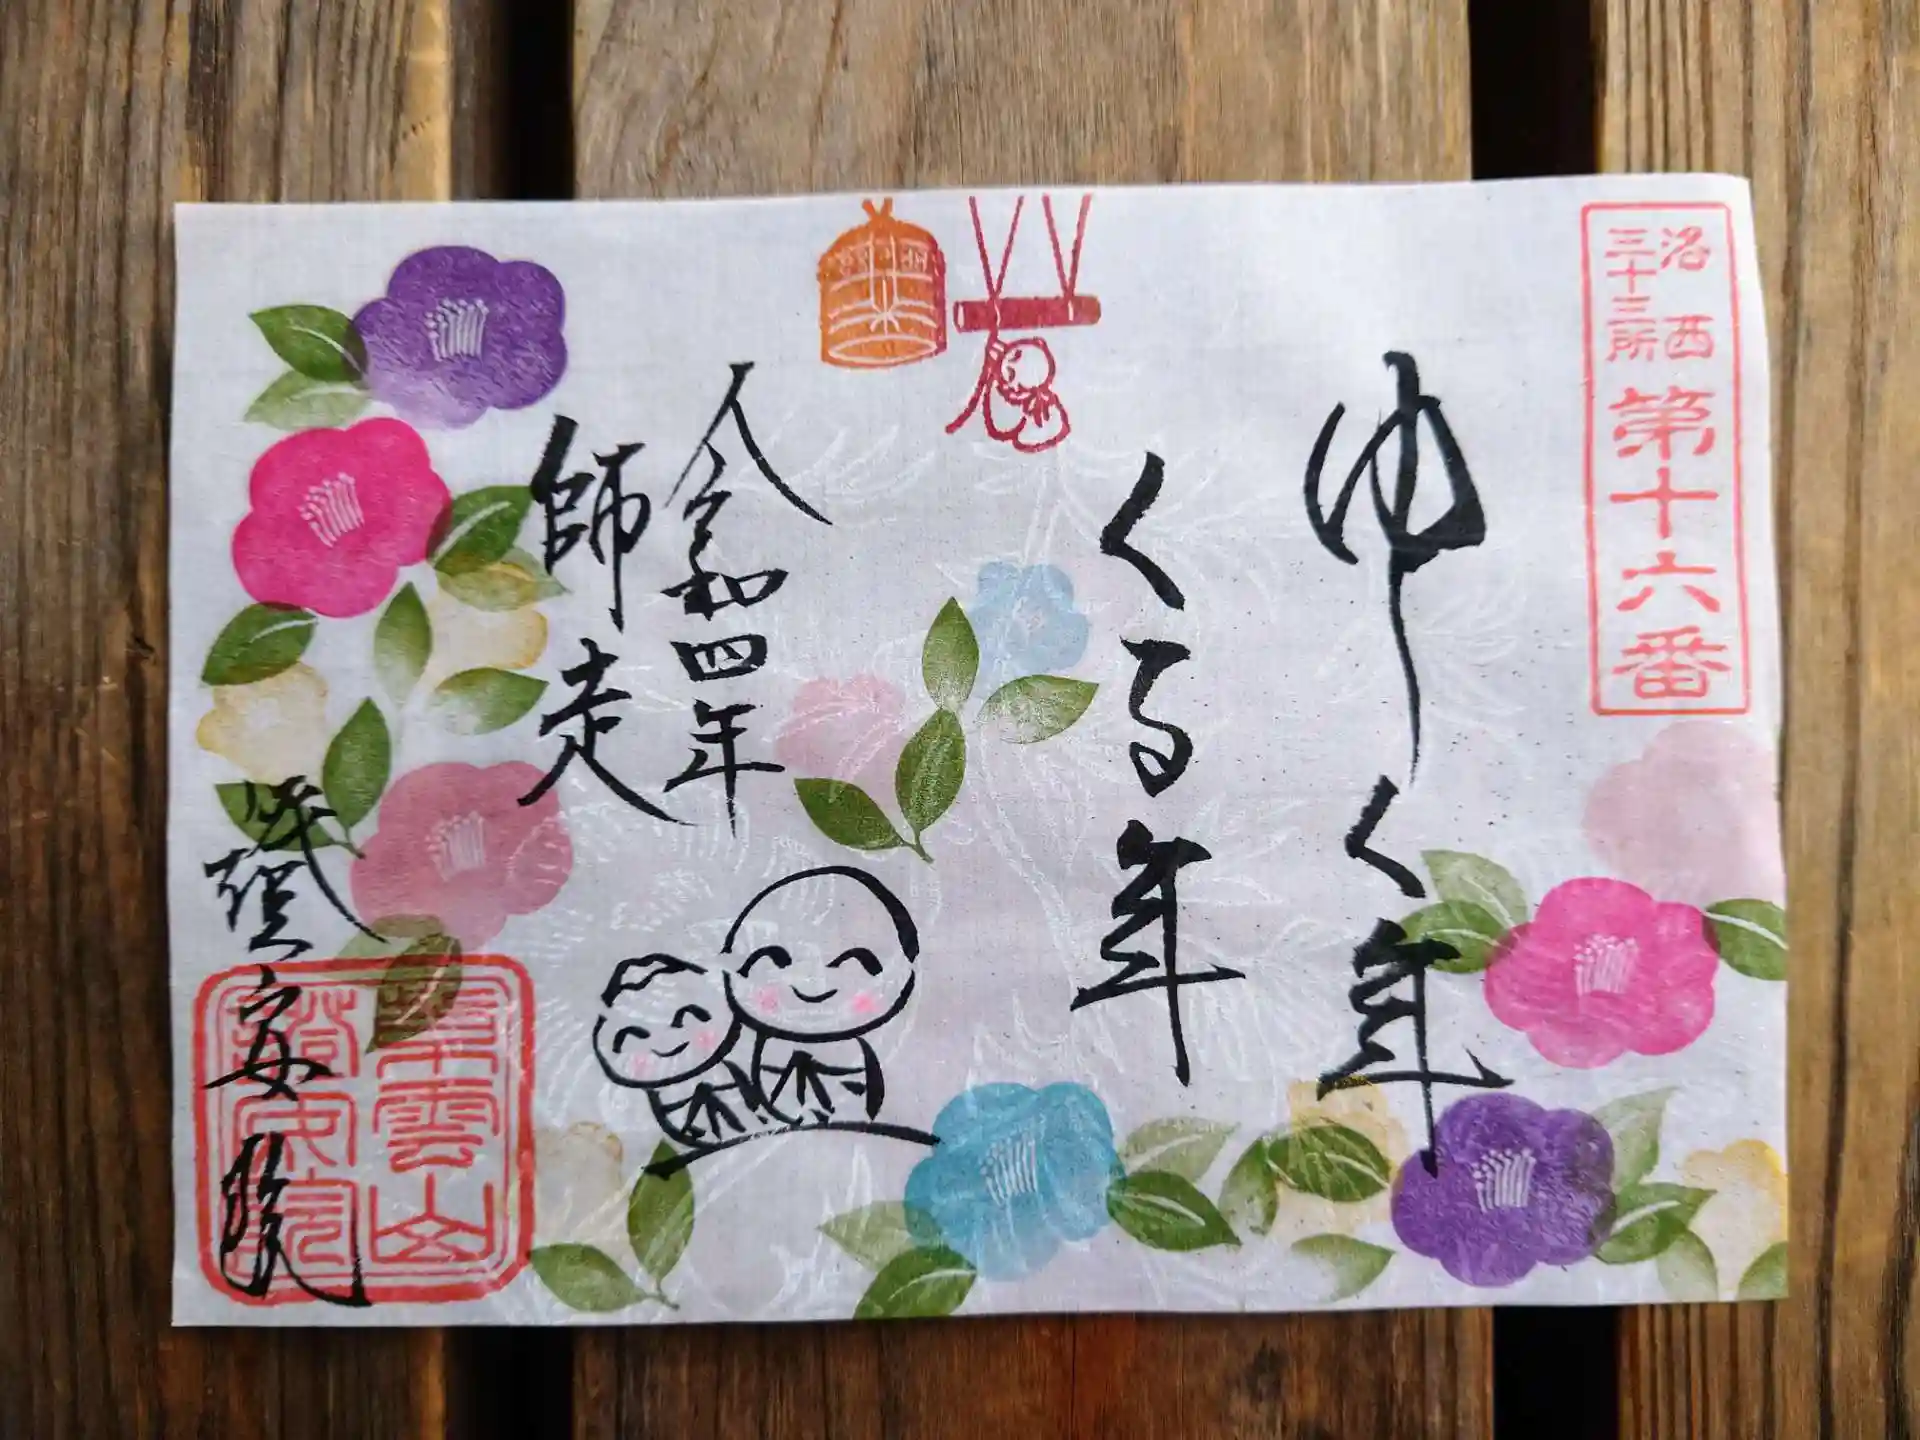 洛西
三十三所
第十六番
ゆく年
くる年
令和四年
師走